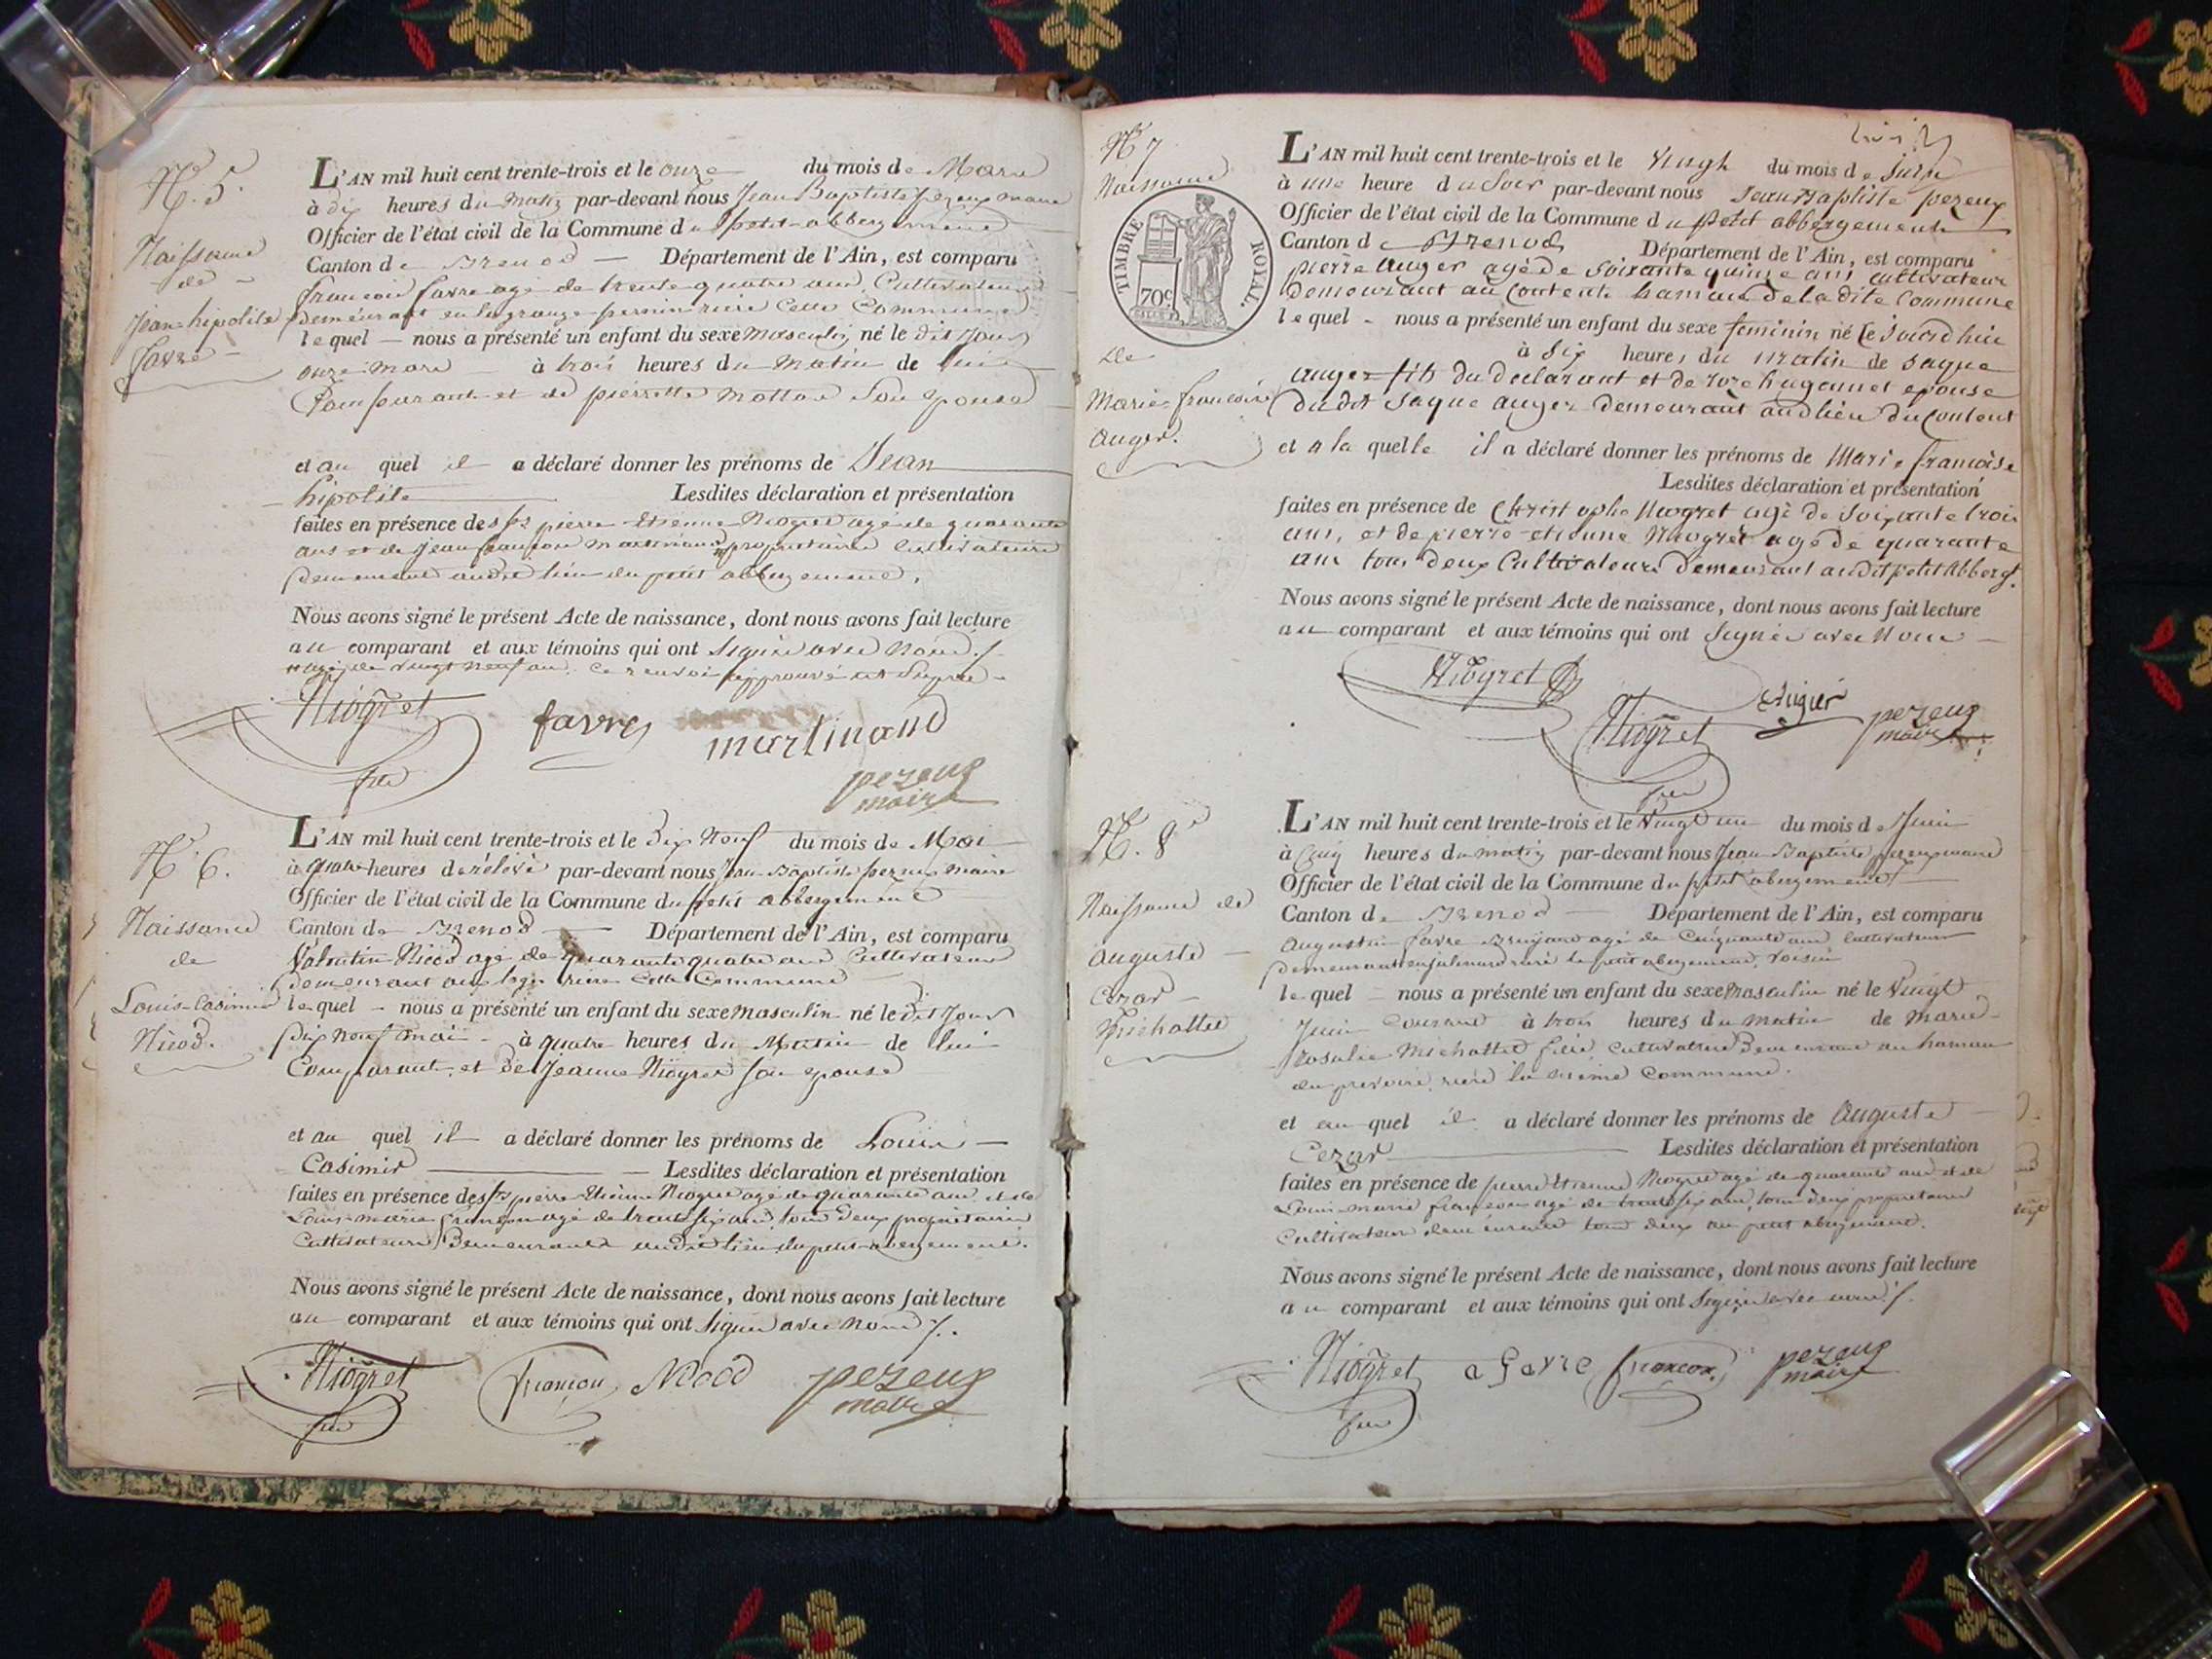 N.° 5.
Naissance
de
Jean hipolite
favre
L'AN mil huit cent trente-trois et le onze du mois de Mars
à dix heures du matin par-devant nous Jean Baptiste pezeux maire
Officier de l'état civil de la Commune du petit abbergement
Canton de Brenod Département de l'Ain, est comparu
francois favre agé de trente quatre ans, Cultivateur
demeurant en la grange rière Cette Commune
lequel nous a présenté un enfant du sexe masculin né le dit jour
onze mars à trois heures du matin de lui
Comparant et de pierrette Mottar Son epouse
et au quel il a déclaré donner les prénoms de Jean
hipolite Lesdites déclaration et présentation
faites en présence des srs pierre Etienne Niogret agé de quarante
ans et de Jean francois martinand propriétaires Cultivateurs
demeurant audit lieu du petit abbergement.
Nous avons signé le présent Acte de naissance, dont nous avons fait lecture
au comparant et aux témoins qui ont Signé avec Nous ./.
agé de vingt neuf ans. Ce renvoi approuvé et Signé
Niogret favre martinand
pezeux
maire
N.° 6.
Naissance
de
Louis-Casimir
Nicod.
L'AN mil huit cent trente-trois et le dix Neuf du mois de Mai
à quatre heures de rélévé par-devant nous Jean Baptiste pezeux maire
Officier de l'état civil de la Commune du petit abbergement
Canton de Brenod Département de l'Ain, est comparu
Valentin Nicod agé de quarante quatre ans Cultivateur
demeurant aux loges rière Cette Commune
lequel nous a présenté un enfant du sexe masculin né le dit Jour
dix neuf mai à quatre heures du Matin de lui
Comparant, et de Jeanne Niogret Son epouse
et au quel il a déclaré donner les prénoms de Louis
Casimir Lesdites déclaration et présentation
faites en présence des srs pierre Etienne Niogret agé de quarante ans et de
Louis marie françon agé de trente six ans, tous deux propriétaires
Cultivateurs Demeurants audit lieu du petit abergement.
Nous avons signé le présent Acte de naissance, dont nous avons fait lecture
au comparant et aux témoins qui ont Signé avec Nous ./.
Niogret françon Nicod pezeux
maire
N.° 7
Naissance
TIMBRE ROYAL.
70c.
de
Marie francoise
auger.
L'AN mil huit cent trente-trois et le Vingt du mois de Juin
à une heure du Soir par-devant nous Jean Baptiste pezeux
Officier de l'état civil de la Commune du petit abbergement
Canton de Brenod Département de l'Ain, est comparu
pierre auger agé de soixante quinze ans cultivateur
demeurant au Contents hamau de la dite Commune
lequel nous a présenté un enfant du sexe feminin né Cejourd'hui
à Six heures du matin de Jaque
auger fils du declarant et de roze hugonnet epouse
du dit Jaque auger demeurant audlieu du Content
et a la quelle il a déclaré donner les prénoms de Marie francoise
Lesdites déclaration et présentation
faites en présence de Christophe Niogret agé de soixante trois
ans, et de pierre etienne Niogret agé de quarante
ans tous deux Cultivateurs demeurant audit petit Abberg.t
Nous avons signé le présent Acte de naissance, dont nous avons fait lecture
au comparant et aux témoins qui ont Signés avec Nous
Niogret
Niogret Augier pezeux
maire
N.° 8
Naissance de
auguste
Cezar
Michattet
L'AN mil huit cent trente-trois et le Vingt un du mois de Juin
à Cinq heures du matin par-devant nous Jean Baptiste pezeux maire
Officier de l'état civil de la Commune du petit abergement
Canton de Brenod Département de l'Ain, est comparu
Augustin favre agé de Cinquante ans Cultivateur
demeurant rière le petit abergement, voisin
lequel nous a présenté un enfant du sexe masculin né le Vingt
Juin Courant à trois heures du matin de Marie
rosalie Michattet fille, Cultivatrice Demeurant au hamau
rière la même Commune.
et au quel il a déclaré donner les prénoms de Auguste
Cezar Lesdites déclaration et présentation
faites en présence de pierre Etienne Niogret agé de quarante ans et de
Louis marie françon agé de trente six ans, tous deux propriétaires
Cultivateurs demeurant tous deux au petit abergement.
Nous avons signé le présent Acte de naissance, dont nous avons fait lecture
au comparant et aux témoins qui ont Signé avec nous ./.
Niogret a favre françon pezeux
maire